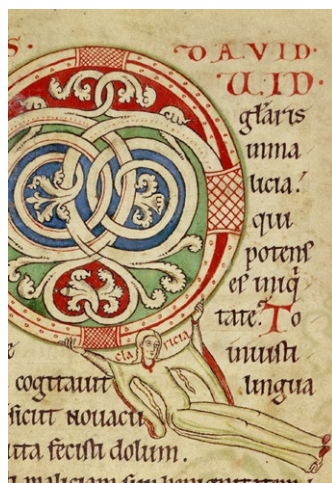 S. DAVID.
UID.
gl̃aris
inma
licia.
qui
potens
es iniq̃
tate. To
claricia
iniusti
cogitauit lingua
sicut nouacu
uta fecisti dolum.